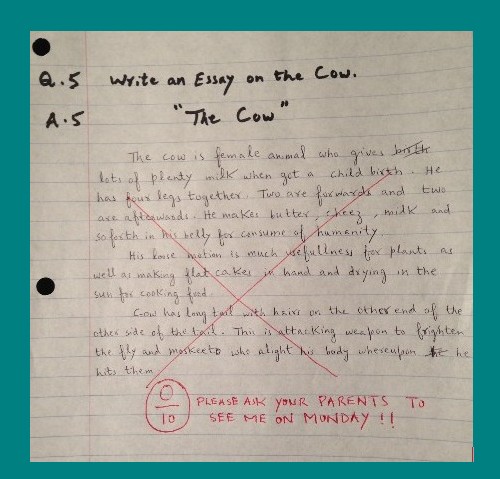 Q.5 Write an Essay on the Cow.
A.5 "The Cow"
The cow is female animal who gives birth
lots of plenty milk when got a child birth. He
has four legs together. Two are forwards and two
are afterwards. He makes butter, cheez, milk and
so forth in his belly for consume of humanity
His loose motion is much usefullness for plants as
well as making flat cakes in hand and drying in the
sun for cooking food.
Cow has long tail with hairs on the other end of the
other side of the tail. This is attacking weapon to frighten
the fly and moskeeto who alight his body whereupon he
hits them
0/10 PLEASE ASK YOUR PARENTS TO
SEE ME ON MONDAY !!